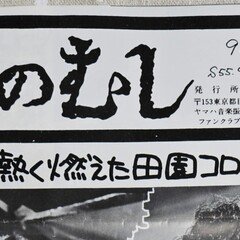 のむし
9
S55.9
発行所
〒153東京都目
ヤマハ音楽振
ファンクラブ
熱く燃えた田園コロ